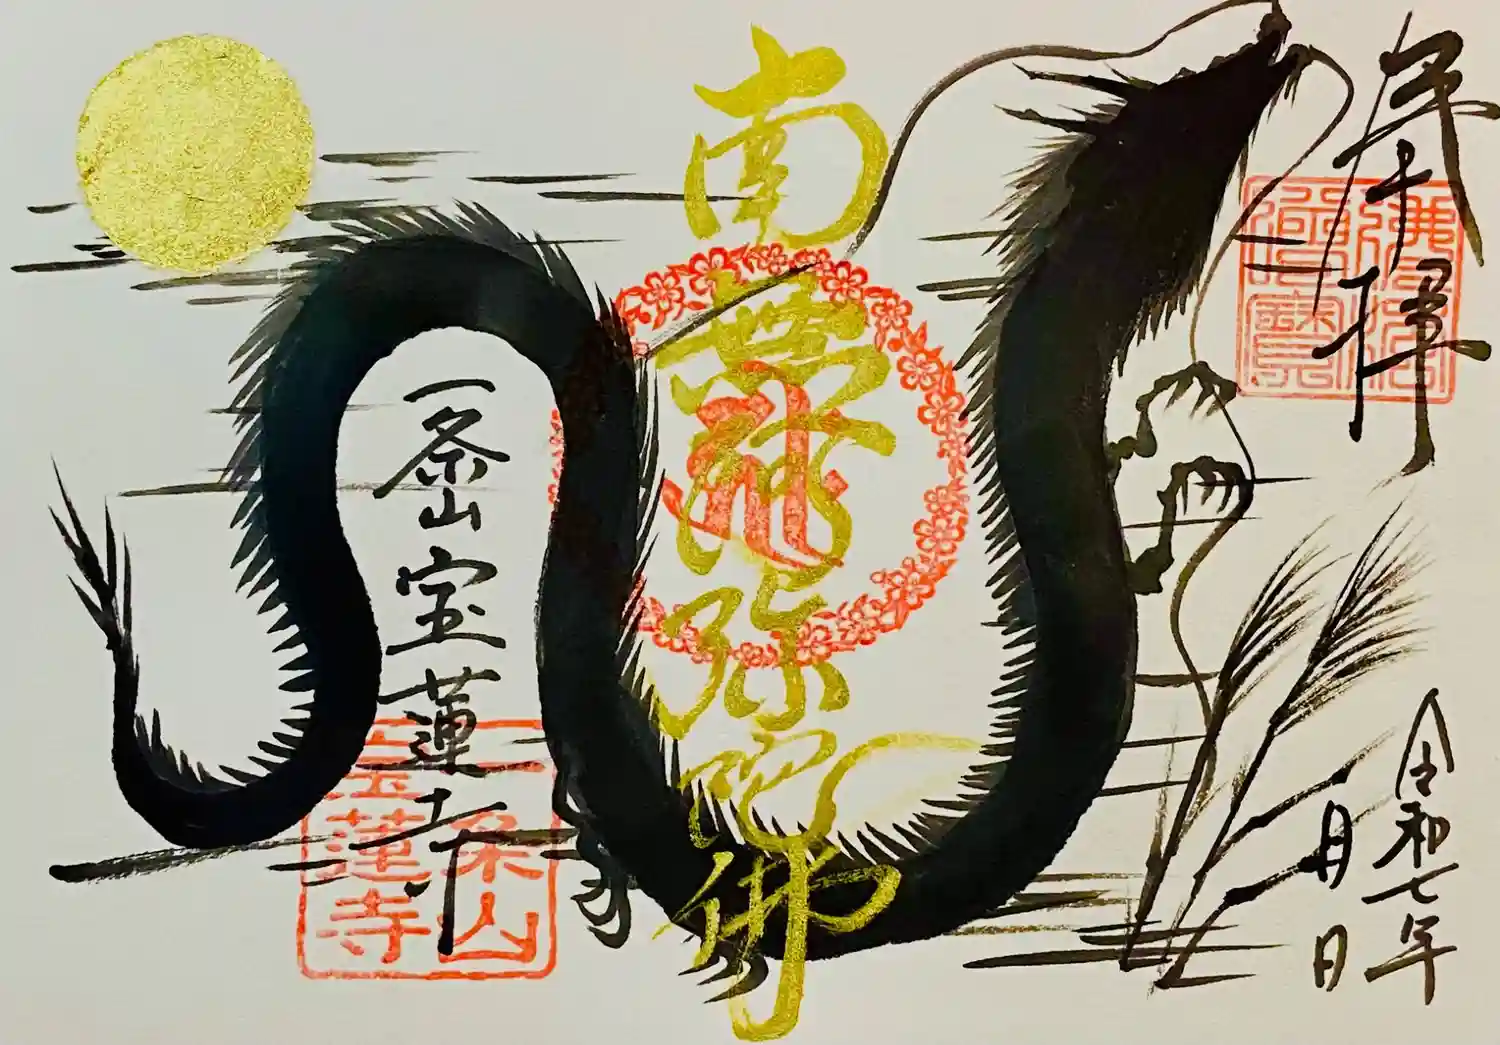 奉拝
佛法僧寶
令和七年
月日
南無阿弥陀佛
一条山宝蓮寺
一条山
宝蓮寺